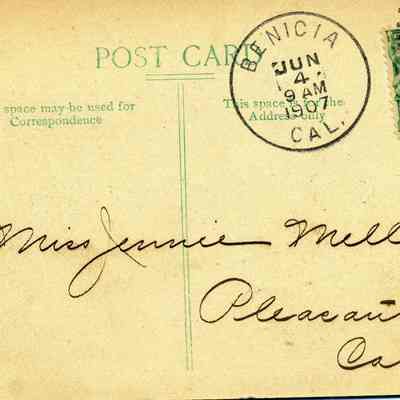 POST CARD
BENICIA
JUN
4
9 AM
1907
CAL.
space may be used for
Correspondence
This space is for the
Address only
Miss Jennie Mell
Pleasan
Ca